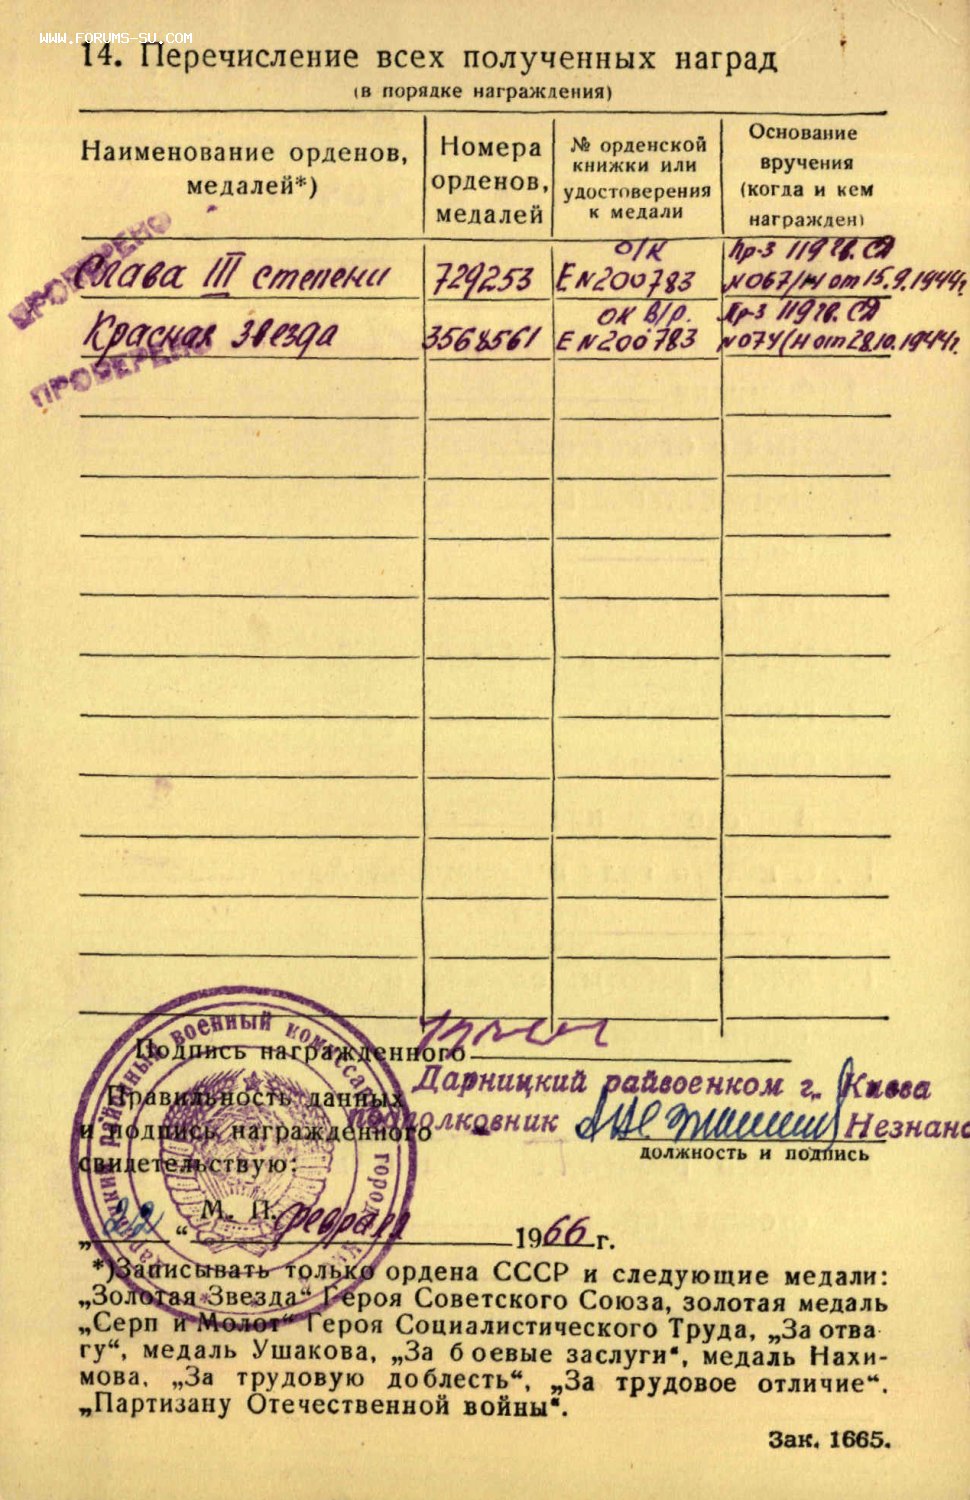 WWW.FORUMS-SU.COM
14. Перечисление всех полученных наград
(в порядке награждения)
Наименование орденов, медалей*)
Номера орденов, медалей
№ орденской книжки или удостоверения к медали
Основание вручения (когда и кем награжден)
ПРОВЕРЕНО
Слава III степени 729253 О/К Е №200783 Пр-з 119 СД №067/н от 15.9.1944г.
Красная звезда 3568561 ОК В/р. Е №200783 Пр-з 119 СД №074/н от 28.10.1944г.
ПРОВЕРЕНО
Подпись награжденного
Дарницкий райвоенком г. Киева
Правильность данных
подполковник Незнано
и подпись награжденного
должность и подпись
свидетельствую:
М. П.
„22“ февраля 1966 г.
районный военный комиссариат город
*)Записывать только ордена СССР и следующие медали:
„Золотая Звезда“ Героя Советского Союза, золотая медаль
„Серп и Молот“ Героя Социалистического Труда, „За отва
гу“, медаль Ушакова, „За боевые заслуги“, медаль Нахи-
мова, „За трудовую доблесть“, „За трудовое отличие“,
„Партизану Отечественной войны“.
Зак. 1665.